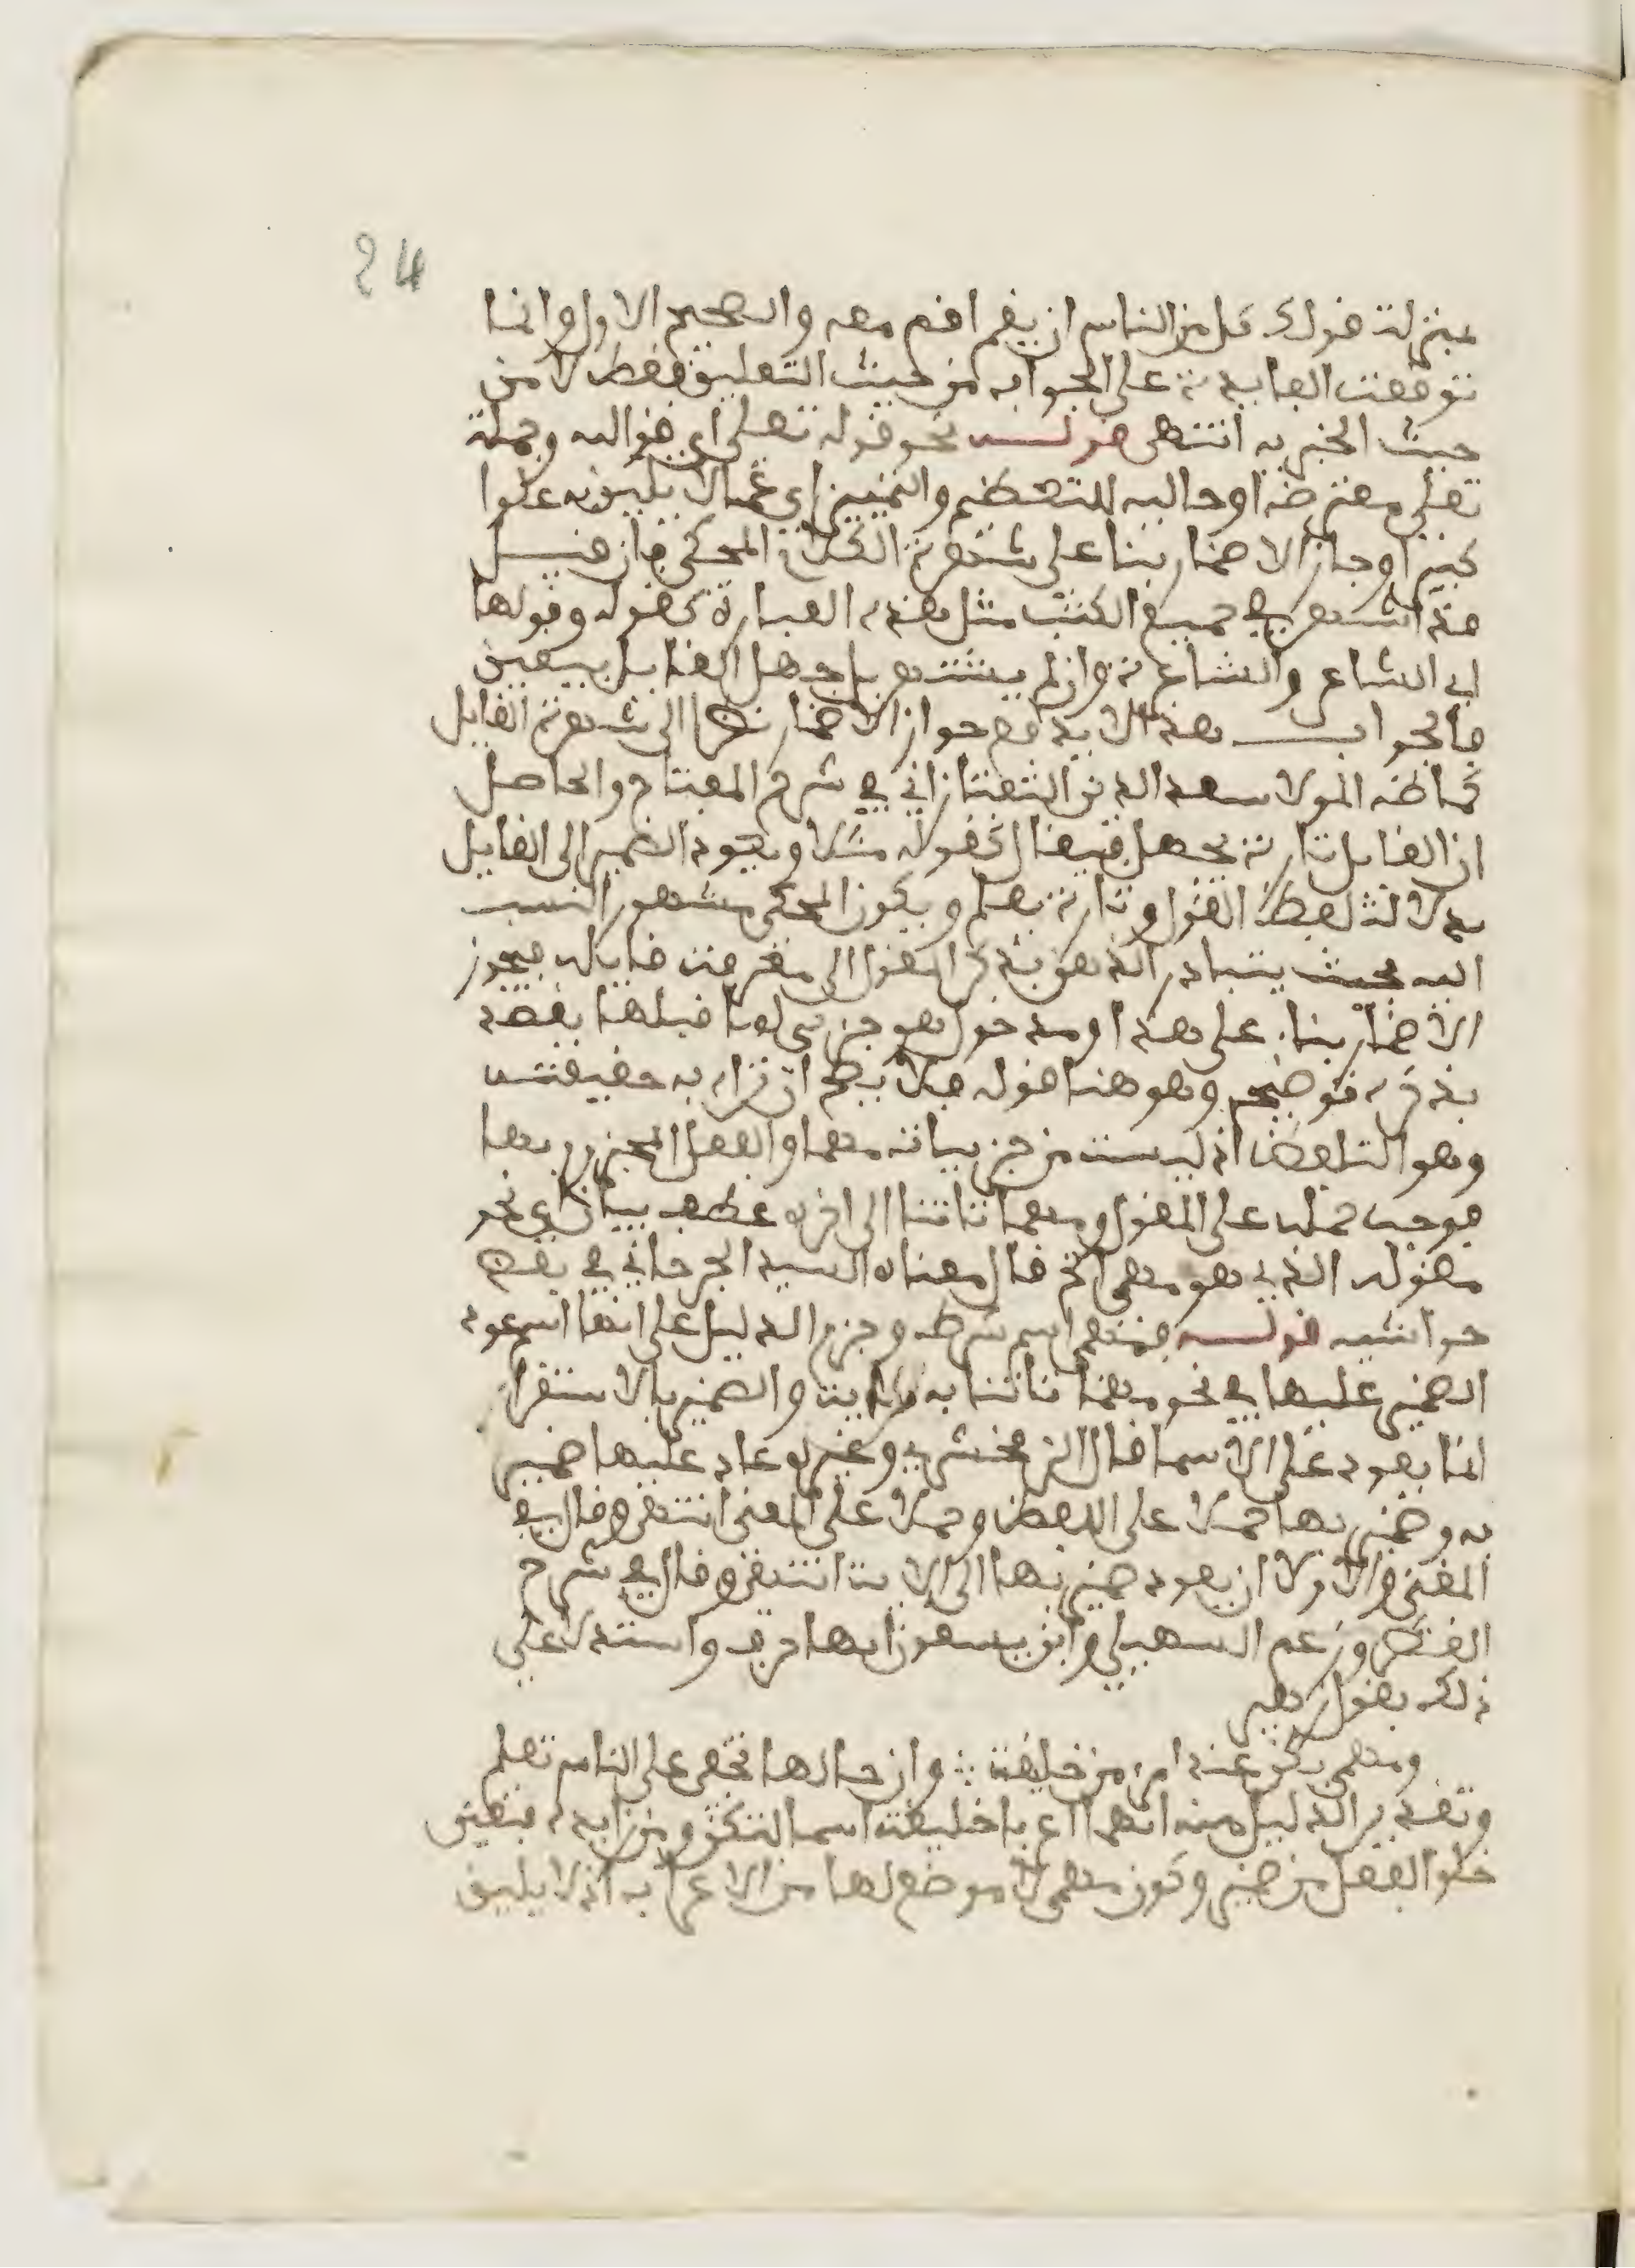 24
بمنزلة قولك كل من الناس ان يقم اقم معه والصحيح الاول وانما
توقفت الفايدة على الجواب من حيث التعليق فقط لا من
حيث الخبرية انتهى قوله نحو قوله تعلى اي قول الله وجملة
تعلى معترضة او حالية للتعظيم والتمييز اي عما لا يليق به علوا
كبيرا وجاز الاضمار بنا على شهرة الكلام المحكي فان قيل
قد اشتهر في جميع الكتب مثل هذه العبارة كقوله وقولها
اي الشاعر والشاعرة وان لم يشتهر بل جهل القايل بيقين
فالجواب هذا لا يدفع جواز الاضمار نظرا الى شهرة القايل
كما ظنه المولا سعد الدين التفتازاني في شرح المفتاح والحاصل
ان القايل تارة يجهل فيقال كقوله مثلا ويعود الضمير الى القايل
بدلالة لفظ القول وتارة يعلم ويكون المحكي مشهور النسب
اليه بحيث يتبادر الذهن بذكر القول الى معرفة قايله فيجوز
الاضمار بنا على هذا ومدخول نحو جزءي لما قبلها يقصد
بذكره توضيحه وهو هنا قوله فلا يصح ان يراد به حقيقته
وهو التلفظ اذ ليست من جزيياته مهما والفعل المجزوم بها
فوجب حمله على المقول ومهما تاتنا الى اخره عطف بيان اي نحو
مقوله الذي هو مهمى الخ قال معناه السيد الجرجاني في بعض
حواشيه قوله فمنهم اسم شرط وجزم الدليل على انها اسم عود
الضمير عليها في نحو مهما تاتنا به من اية والضمير بالاستقرا
انما يعود على الاسما قال الزمخشري وغيره عاد عليها ضمير
به وضمير بها حملا على اللفظ وحملا على المعنى انتهى وقال في
المغني والاولا ان يعود ضمير بها الى الاية انتهى وقال في شرح
القطر وزعم السهيلي وابن يسعون انها حرف واستدلا على
ذلك بقول زهير
ومهمى يكن عند امرء من خليقة ∴ وان خالها تخفى على الناس تعلم
وتقدير الدليل منه انهما اعربا خليقة اسما لتكن ومن زايدة فتعين
خلو الفعل من ضمير وكون مهمى لا موضع لها من الاعراب اذ لا يليق